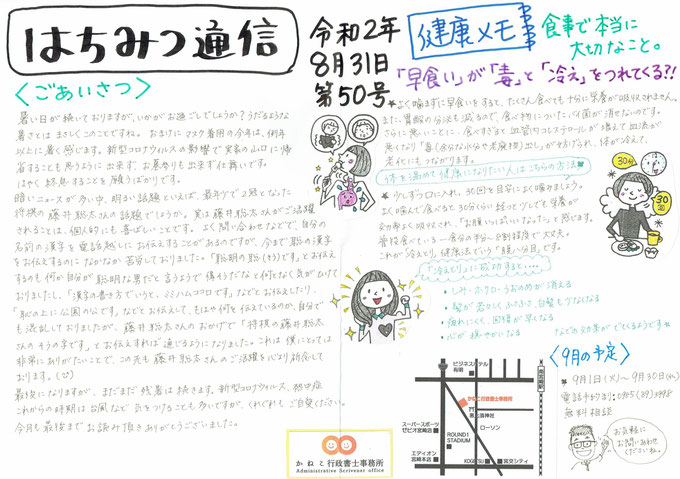 はちみつ通信
令和2年
8月31日
第50号
<ごあいさつ>
暑い日が続いておりますが、いかがお過ごしでしょうか?うだるような
暑さとは まさしくこのことですね。おまけにマスク着用の今年は、例年
以上に暑く感じます。新型コロナウィルスの影響で実家の山口に帰
省することも思うように出来ず、お墓参りも出来ず仕舞いです。
はやく終息することを願うばかりです。
暗いニュースが多い中、明るい話題といえば、最年少で2冠となった
将棋の藤井聡太さんの話題でしょうか。実は藤井聡太さんがご活躍
されることは、個人的にも喜ばしいことです。よく問い合わせなどで、自分の
名前の漢字を電話越しにお伝えすることがあるのですが、今まで聡の漢字
をお伝えするのになかなか苦労しておりました。「聡明の聡(そう)です」とお伝えす
るのも何か自分が聡明な男だと言うようで偉そうだなと何となく気がひけて
おりましたし、「漢字の書き方でいうと、ミミハムココロです」などとお伝えしたり、
「耳の上に公園の公です」などとお伝えして、もはや何を伝えているのか、自分で
も混乱しておりましたが、藤井聡太さんのおかげで「将棋の藤井聡太
さんのそうの字です」とお伝えすれば通じるようになりました。これは僕にとっては
非常にありがたいことで、この先も藤井聡太さんのご活躍を心より祈念して
おります。
最後になりますが、まだまだ残暑は続きます。新型コロナウィルス、熱中症
これからの時期は台風などで気をつけることも多いですが、くれぐれもご自愛ください。
今月も最後までお読み頂きありがとうございました。
かねこ行政書士事務所
Administrative Scrivener office
健康メモ
食事で本当に
大切なこと。
「早食い」が「毒」と「冷え」をつれてくる?!
★よく噛まずに早食いをすると、たくさん食べても十分に栄養が吸収されません。
また、胃酸の分泌も減るので、食べ物についたバイ菌が消せないのです。
さらに悪いことに、食べすぎると血管内コレステロールが増えて血流が
悪くなり「毒(余分な水分や老廃物)出し」が妨げられ、体が冷えて、
老化にもつながります。
体を温めて健康になりたい人はこちらの方法
★少しずつ口に入れ、30回を目安によく噛みましょう。
よく噛んで食べると30分くらい経つと少しでも栄養が
充分吸収されて、「お腹いっぱいになった」と感じます。
普段食べている一食分の半分~8割程度で大丈夫。
これが冷えとり健康法でいう「腹八分目」です。
30分
30回
「冷えとり」に成功すると・・・・
・シミ・ホクロ・うおのめが消える
・髪が若々しくふさふさ、白髪もなくなる
・疲れにくく、回復が早くなる
・心が穏やかになる
などの効果がでてくるようです★
ビジネスホテル
有明
かねこ行政書士事務所
スーパースポーツ
ゼビオ宮崎店
ROUND1
STADIUM
ローソン
エディオン
宮崎本店
宮交シティ
南宮崎駅
<9月の予定>
★9月1日(火)~9月30日(水)
無料相談
お気軽に
お問い合わせ
くださいね。